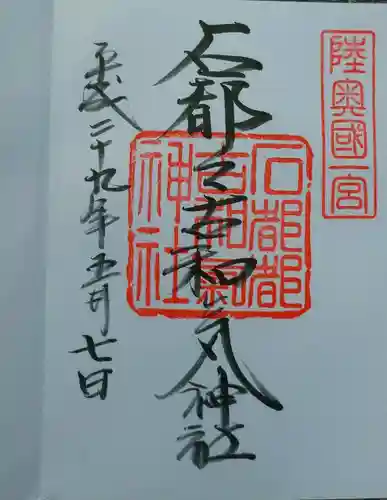 陸奥國一宮
石都々古和氣神社
石都都古和氣神社
平成二十九年五月七日